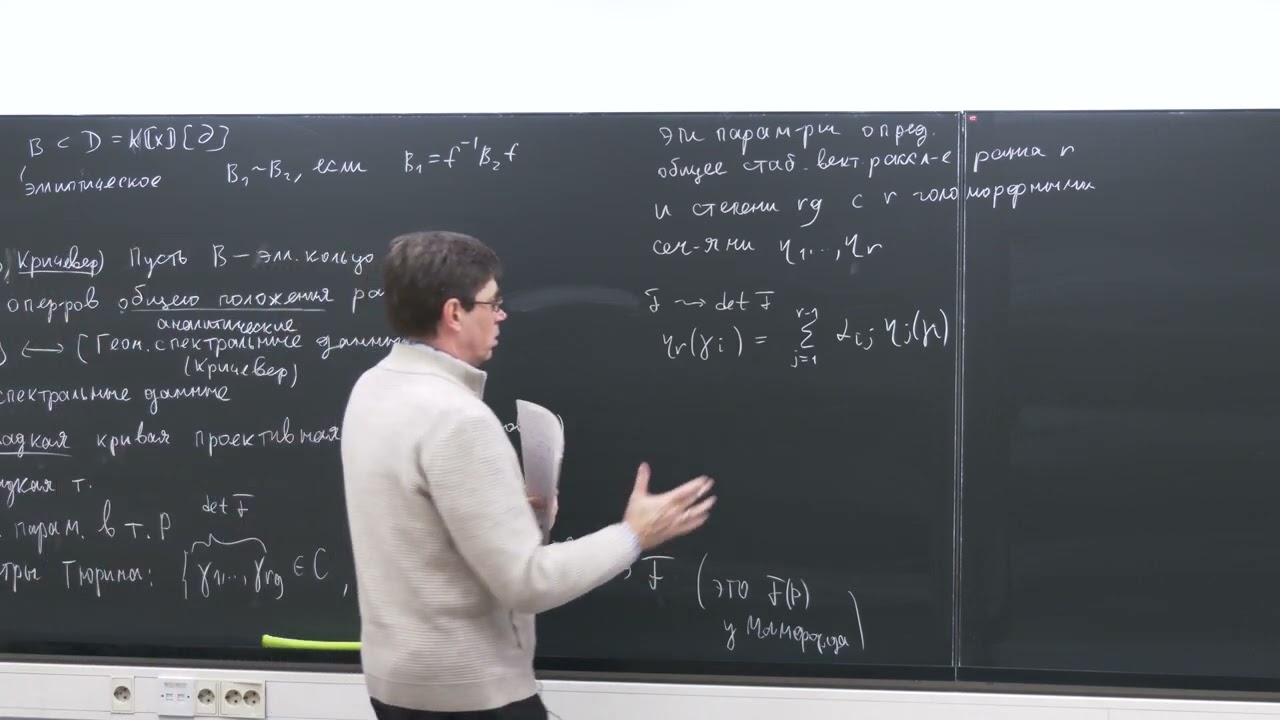 B ⊂ D = K[[x]][∂]
эллиптическое
B₁ ~ B₂, если B₁ = f⁻¹B₂f
Кричевер) Пусть B – элл. кольцо
опер-ров общего положения
аналитические
⟷ [Геом. спектральные данные
(Кричевер)
спектральные данные
адкая кривая проективная
дкая т.
парам. в т. P
det F
тры Тюрина: {γ₁,..., γ_rg ∈ C,
эти парам-ры опред.
общее стаб. вект. рассл-е ранга r
и степени rg с r голоморфными
сеч-яни η₁,...,η_r
F ⇝ det F
η_r(γ_i) = ∑_{j=1}^{r-1} α_{ij} η_j(γ_i)
F (это F(P)
у Мамфорда)